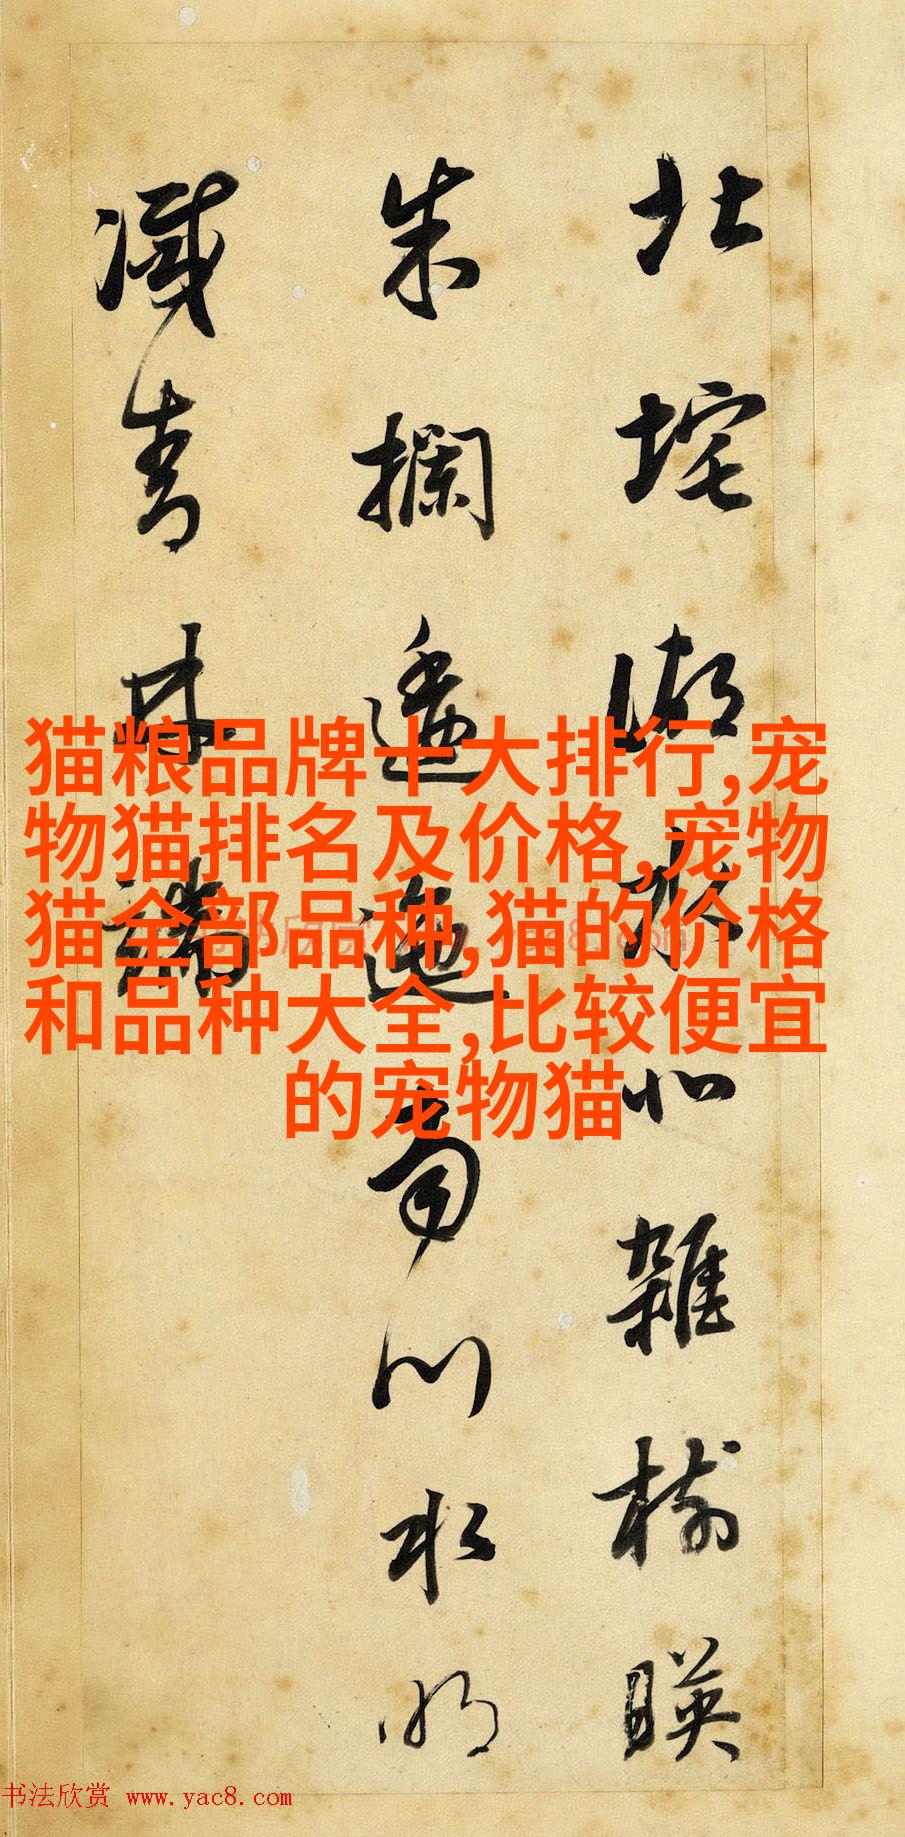 北垞湖水北雜樹暎
朱攔逶迤南川水明
滅青林端
猫粮品牌十大排行,宠
物猫排名及价格,宠物
猫全部品种,猫的价格
和品种大全,比较便宜
的宠物猫
书法欣赏 www.yac8.com